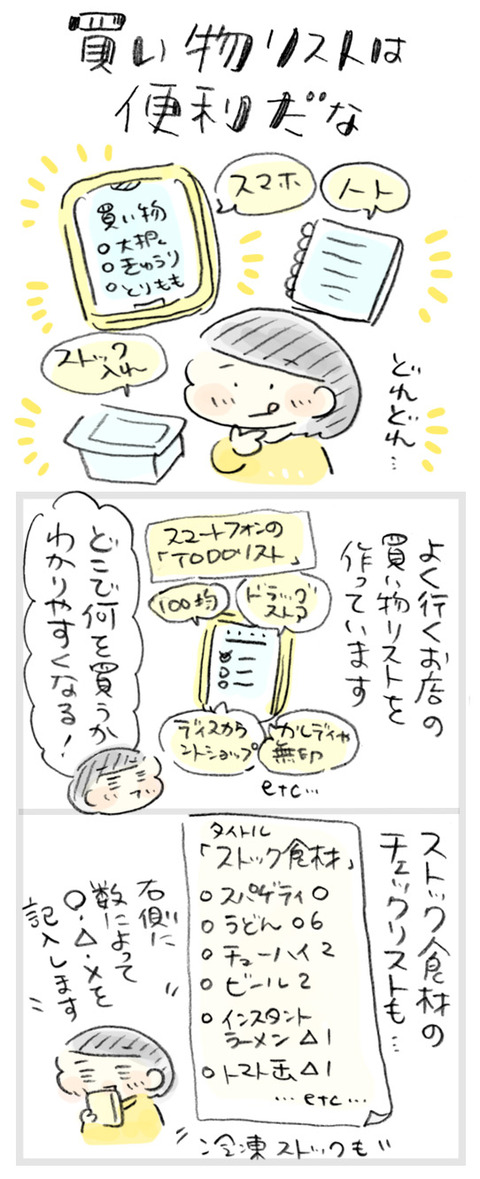 買い物リストは
便利だな
スマホ
ノート
買い物
○大根
○きゅうり
○とりもも
ストック
入れ
どれどれ…
よく行くお店の
買い物リストを
作っています
スマートフォンの
「TODOリスト」
100均
ドラッグ
ストア
ディスカウ
ントショップ
カルディや
無印
etc…
どこで何を買うか
わかりやすくなる！
ストック食材の
チェックリストも…
タイトル
「ストック食材」
○スパゲティ○
○うどん○6
○チューハイ2
○ビール2
○インスタント
ラーメン△1
○トマト缶△1
…etc…
右側に
数によって
○・△・×を
記入します
冷凍ストックも